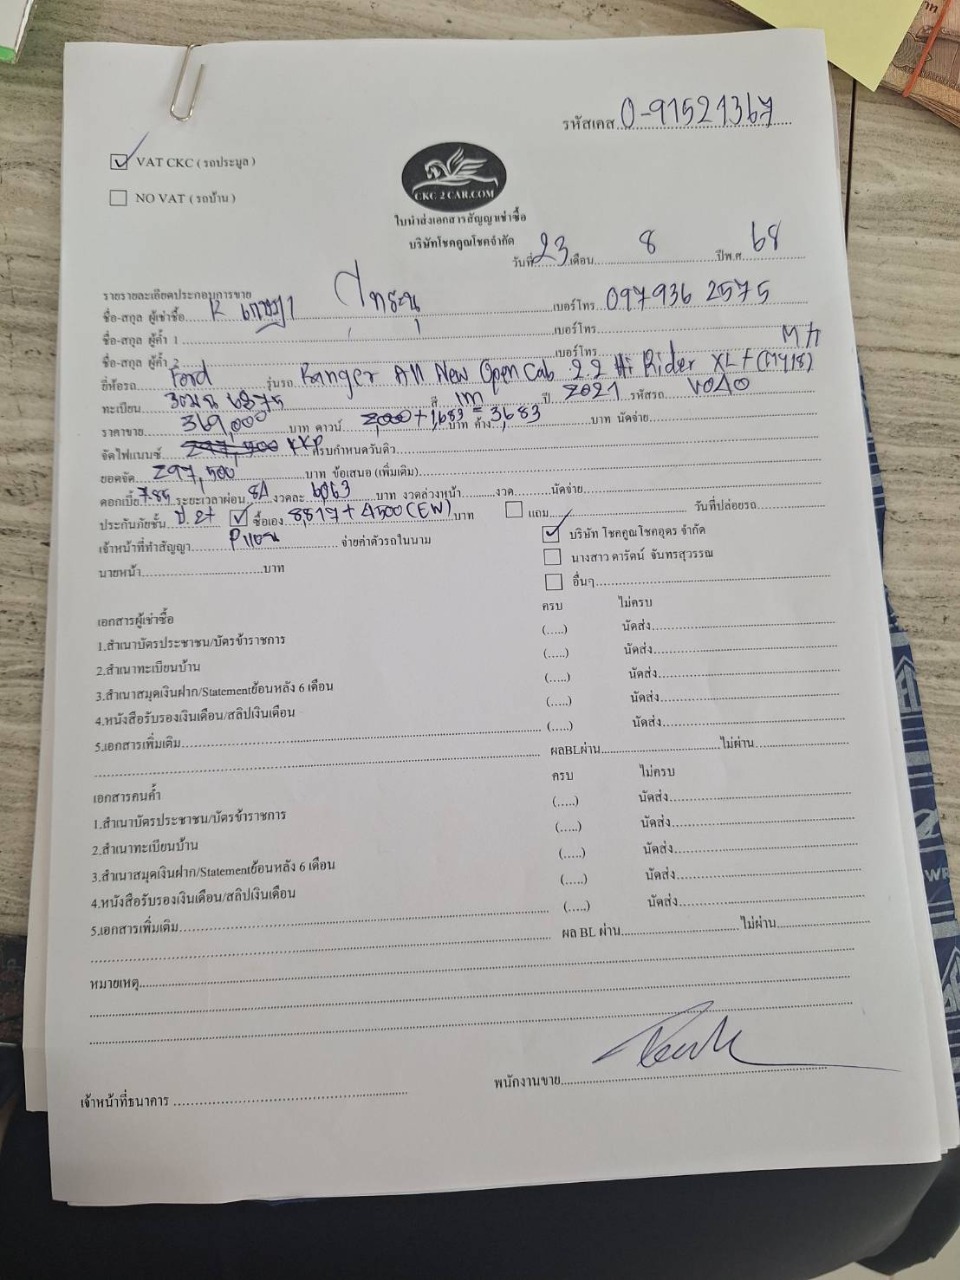 รหัสเคส 0-91521367
VAT CKC ( รถประมูล )
NO VAT ( รถบ้าน )
CKC 2 CAR.COM
ใบนำส่งเอกสารสัญญาเช่าซื้อ
บริษัทโชคคูณโชคจำกัด
วันที่ 23 เดือน 8 ปีพ.ศ. 68
รายรายละเอียดประกอบการขาย
ชื่อ-สกุล ผู้เช่าซื้อ K เบอร์โทร 097936 2575
ชื่อ-สกุล ผู้ค้ำ 1 เบอร์โทร
ชื่อ-สกุล ผู้ค้ำ 2 เบอร์โทร
ยี่ห้อรถ Ford รุ่นรถ Ranger All New Open Cab 2.2 Hi Rider XL+ (MY18) M/T
ทะเบียน 6875 สี เทา ปี 2021 รหัสรถ V040
ราคาขาย 369,000 บาท ดาวน์ 2,000 + 1,683 = 3,683 บาท ค้าง บาท นัดจ่าย
จัดไฟแนนซ์ 297,500 KKP ครบกำหนดวันดิว
ยอดจัด 297,500 บาท ข้อเสนอ (เพิ่มเติม)
ดอกเบี้ย 7.85 ระยะเวลาผ่อน 84 งวดละ 6063 บาท งวดล่วงหน้า งวด นัดจ่าย
ประกันภัยชั้น ป.2+ ซื้อเอง 8,817 + 4500 (EW) บาท แถม วันที่ปล่อยรถ
เจ้าหน้าที่ทำสัญญา จ่ายค่าตัวรถในนาม บริษัท โชคคูณโชคอุดร จำกัด
นางสาว ดารัตน์ จันทรสุวรรณ
นายหน้า บาท
อื่นๆ
เอกสารผู้เช่าซื้อ ครบ ไม่ครบ
1.สำเนาบัตรประชาชน/บัตรข้าราชการ (.....) นัดส่ง
2.สำเนาทะเบียนบ้าน (.....) นัดส่ง
3.สำเนาสมุดเงินฝาก/Statementย้อนหลัง 6 เดือน (.....) นัดส่ง
4.หนังสือรับรองเงินเดือน/สลิปเงินเดือน (.....) นัดส่ง
5.เอกสารเพิ่มเติม (.....) นัดส่ง
ผลBLผ่าน ไม่ผ่าน
เอกสารคนค้ำ ครบ ไม่ครบ
1.สำเนาบัตรประชาชน/บัตรข้าราชการ (.....) นัดส่ง
2.สำเนาทะเบียนบ้าน (.....) นัดส่ง
3.สำเนาสมุดเงินฝาก/Statementย้อนหลัง 6 เดือน (.....) นัดส่ง
4.หนังสือรับรองเงินเดือน/สลิปเงินเดือน (.....) นัดส่ง
5.เอกสารเพิ่มเติม (.....) นัดส่ง
ผล BL ผ่าน ไม่ผ่าน
หมายเหตุ
พนักงานขาย
เจ้าหน้าที่ธนาคาร